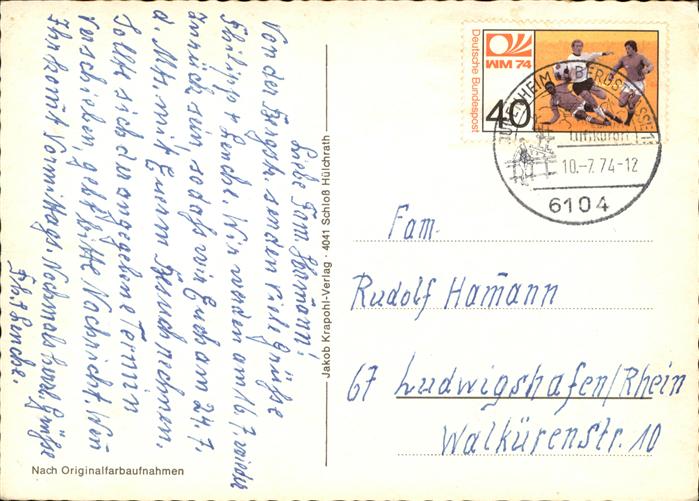 Liebe Fam. Hamann!
Von der Bergstr. senden viele Grüße
Philipp + Lenche. Wir werden am 16.7. wieder
zurück sein, sodaß wir Euch am 24.7.
d. Mts. mit Euerm Besuch rechnen.
Sollte sich der angegebene Termin
verschieben, gebt bitte Nachricht. Wenn
Ihr kommt Vormittags. Nochmals herzl. Grüße
Lenche.
Jakob Krapohl-Verlag · 4041 Schloß Hülchrath
Nach Originalfarbaufnahmen
WM 74
Deutsche Bundespost
40
BERGSTRASSE
Luftkurort
10.-7.74-12
6104
Fam.
Rudolf Hamann
67 Ludwigshafen/Rhein
Walkürenstr. 10